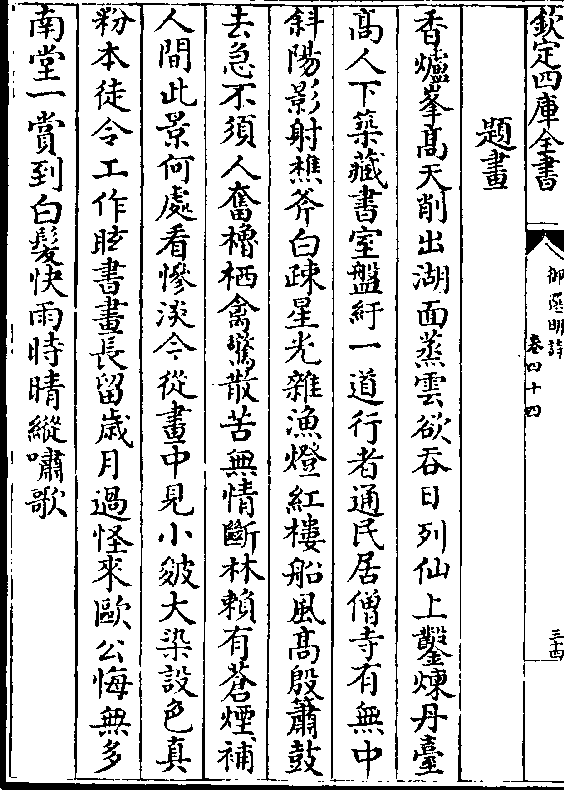 欽定四庫全書
御選明詩
卷四十四
三十四
題畫
香爐峯髙天削出湖面蒸雲欲吞日列仙上鑿煉丹臺
髙人下築藏書室盤紆一道行者通民居僧寺有無中
斜陽影射樵斧白疎星光雜漁燈紅樓船風髙殷簫鼓
去急不須人奮櫓栖禽驚散苦無情斷林賴有蒼煙補
人間此景何處看慘淡今從畫中見小皴大染設色真
粉本徒令工作眩書畫長留歲月過怪來歐公悔無多
南堂一賞到白髪快雨時晴縱嘯歌